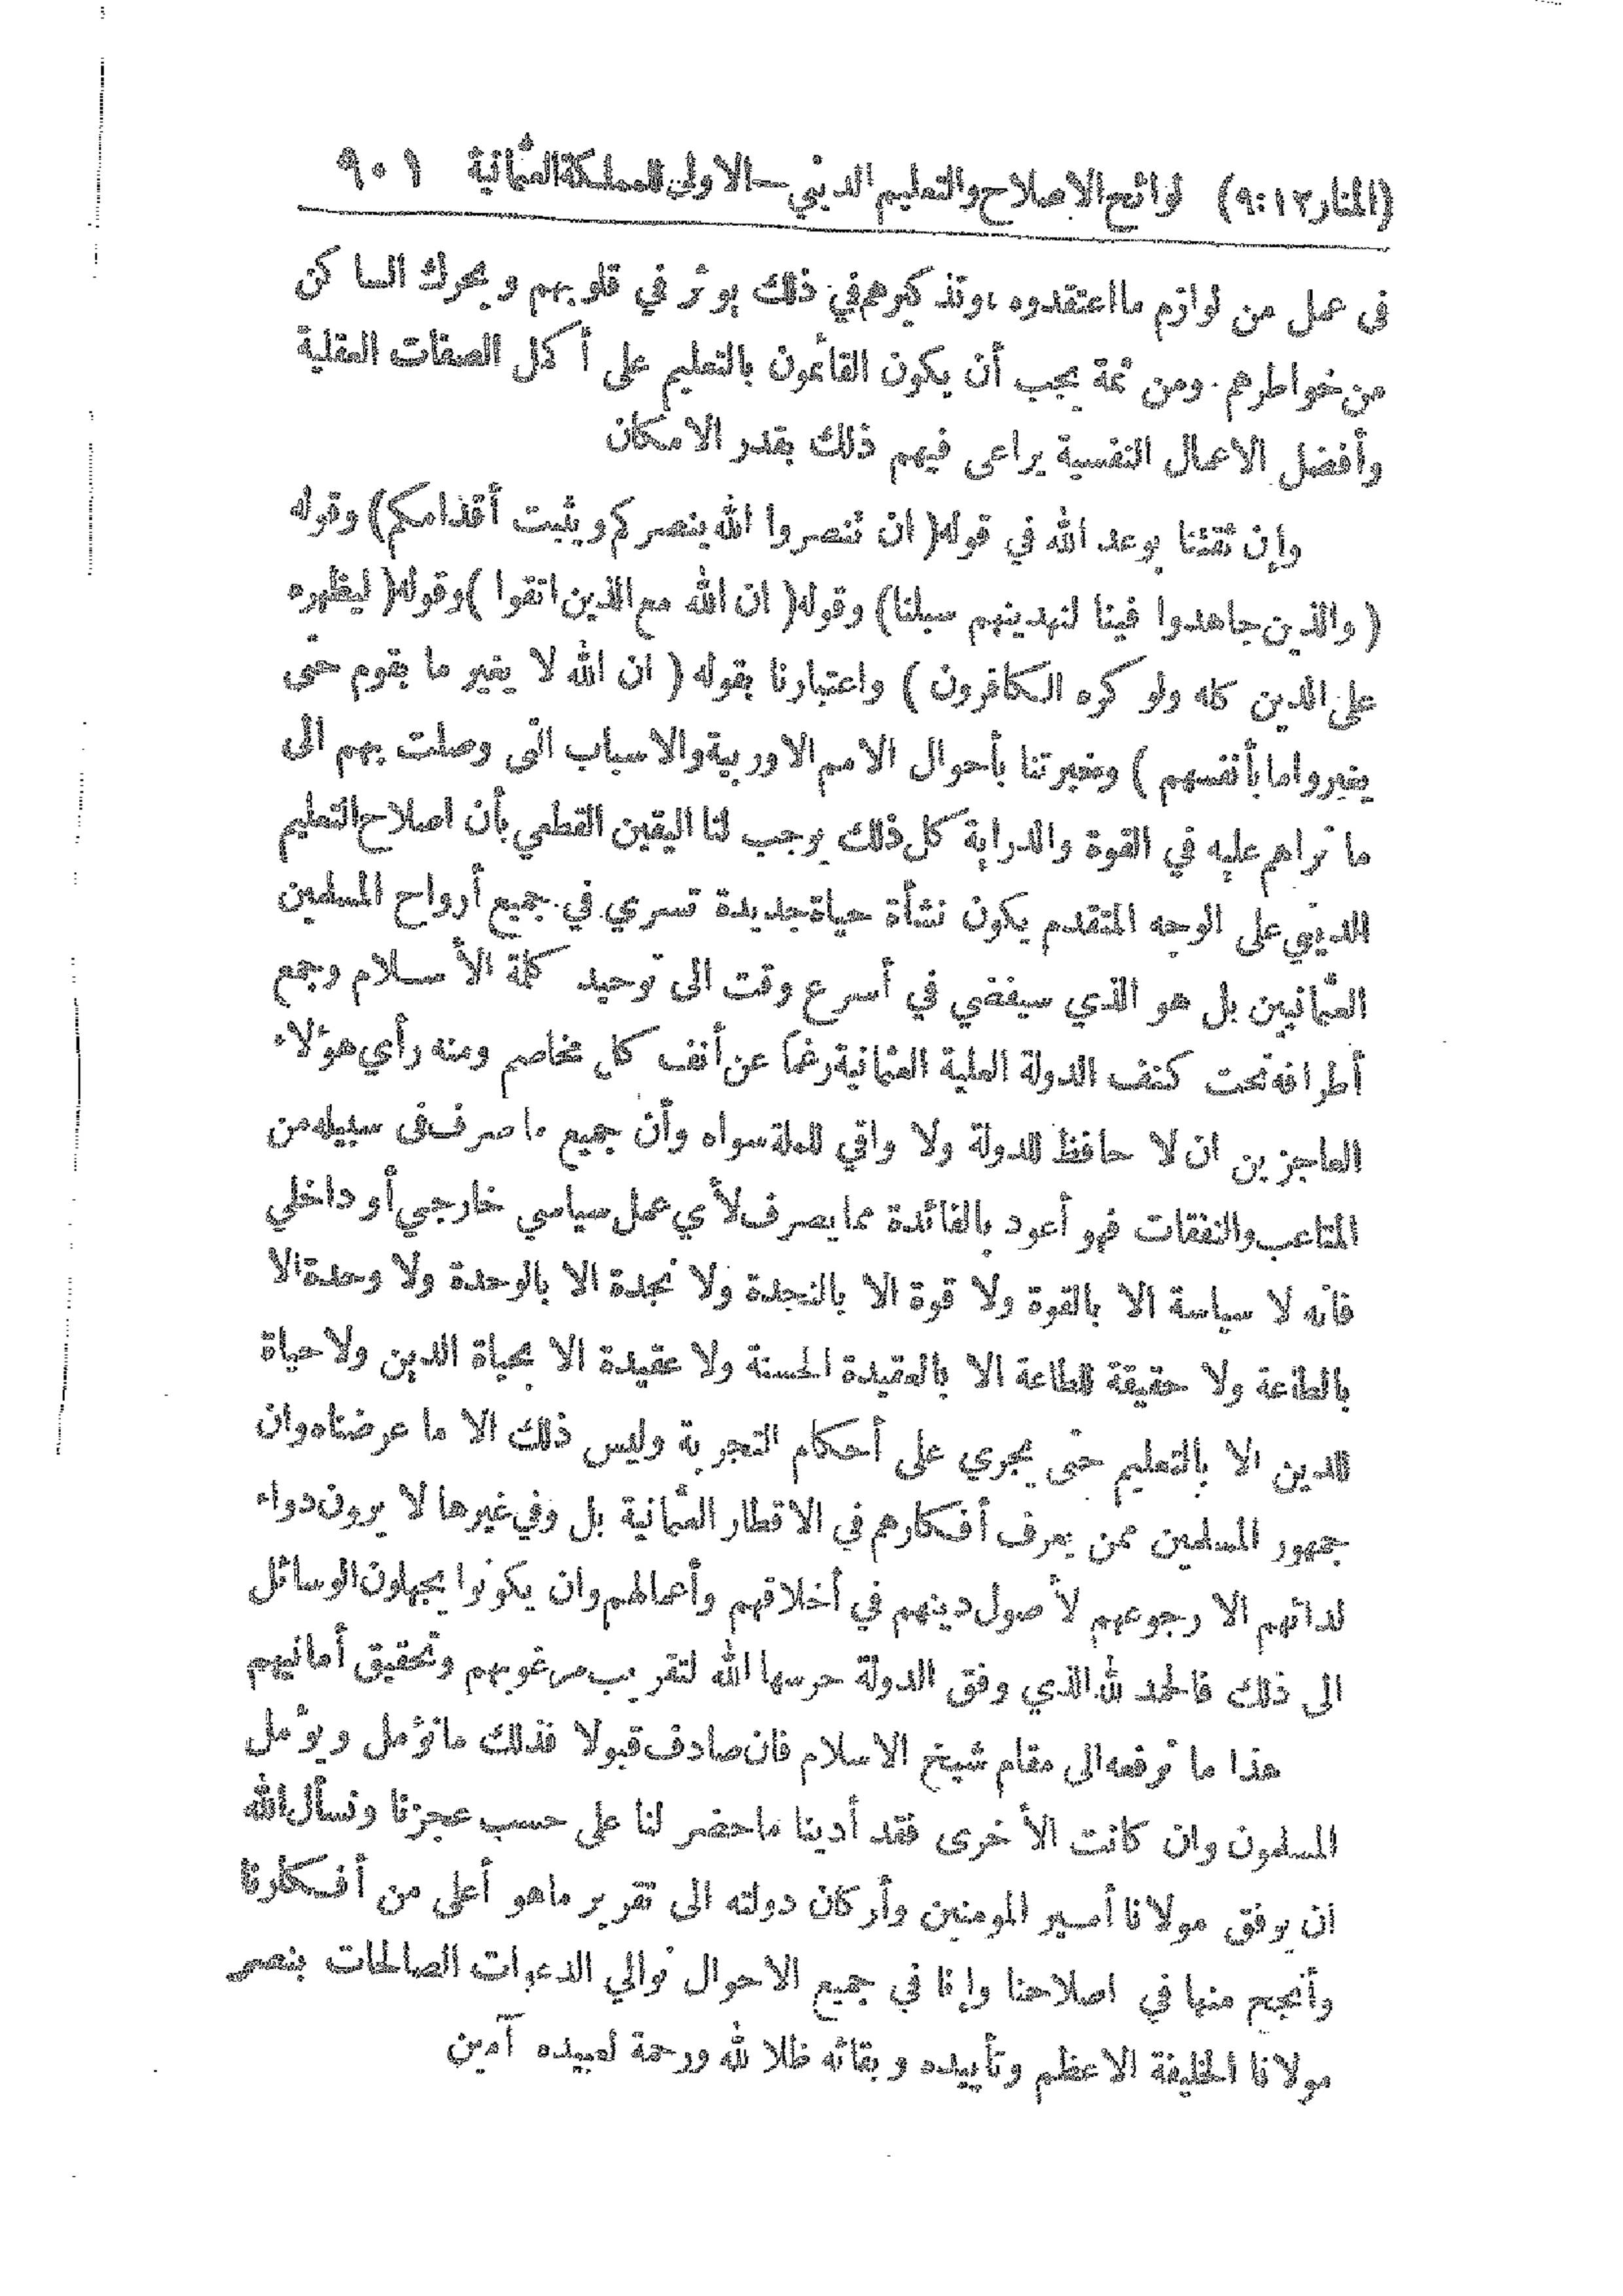 (المنار ١٢:٩) لوائح الاصلاح والتعليم الديني — الاولى للمملكة العثمانية ٩٠١
فى عمل من لوازم ما اعتقدوه ، وتذكيرهم في ذلك يوثر في قلوبهم ويحرك الساكن
من خواطرهم . ومن ثمة يجب أن يكون القائمون بالتعليم على أكمل الصفات العقلية
وأفضل الاعمال النفسية يراعى فيهم ذلك بقدر الامكان
وإن ثقتنا بوعد الله في قوله ( ان تنصروا الله ينصركم ويثبت أقدامكم ) وقوله
( والذين جاهدوا فينا لنهدينهم سبلنا ) وقوله ( ان الله مع الذين اتقوا ) وقوله ( ليظهره
على الدين كله ولو كره الكافرون ) واعتبارنا بقوله ( ان الله لا يغير ما بقوم حتى
يغيروا ما بأنفسهم ) وخبرتنا بأحوال الامم الاوربية والاسباب التى وصلت بهم الى
ما نراهم عليه في القوة والدراية كل ذلك يوجب لنا اليقين القطعي بأن اصلاح التعليم
الديني على الوجه المتقدم يكون نشأة حياة جديدة تسري في جميع أرواح المسلمين
العثمانيين بل هو الذي سيفضي في أسرع وقت الى توحيد كلمة الأسلام وجمع
أطرافه تحت كنف الدولة العلية العثمانية رغماً عن أنف كل مخاصم ومنه رأي هؤلاء
العاجزين ان لا حافظ للدولة ولا واقي للملة سواه وأن جميع ما صرف فى سبيله من
المتاعب والنفقات فهو أعود بالفائدة مما يصرف لأي عمل سياسي خارجي أو داخلي
فانه لا سياسة الا بالقوة ولا قوة الا بالنجدة ولا نجدة الا بالوحدة ولا وحدة الا
بالطاعة ولا حقيقة للطاعة الا بالعقيدة الحسنة ولا عقيدة الا بحياة الدين ولا حياة
للدين الا بالتعليم حتى يجري على أحكام التجربة وليس ذلك الا ما عرضناه وان
جمهور المسلمين ممن يعرف أفكارهم في الاقطار العثمانية بل وفي غيرها لا يرون دواء
لدائهم الا رجوعهم لأصول دينهم في أخلاقهم وأعمالهم وان يكونوا يجهلون الوسائل
الى ذلك فالحمد لله الذي وفق الدولة حرسها الله لتقريب مرغوبهم وتحقيق أمانيهم
هذا ما نرفعه الى مقام شيخ الاسلام فان صادف قبولا فذلك ما نؤمل ويؤمل
المسلمون وان كانت الأخرى فقد أدينا ما حضر لنا على حسب عجزنا ونسأل الله
ان يوفق مولانا أمير المومنين وأركان دولته الى تقرير ما هو أعلى من أفكارنا
وأنجح منها في اصلاحنا وإنا في جميع الاحوال نوالي الدعوات الصالحات بنصر
مولانا الخليفة الاعظم وتأييده وبقائه ظلا لله ورحمة لعبيده آمين